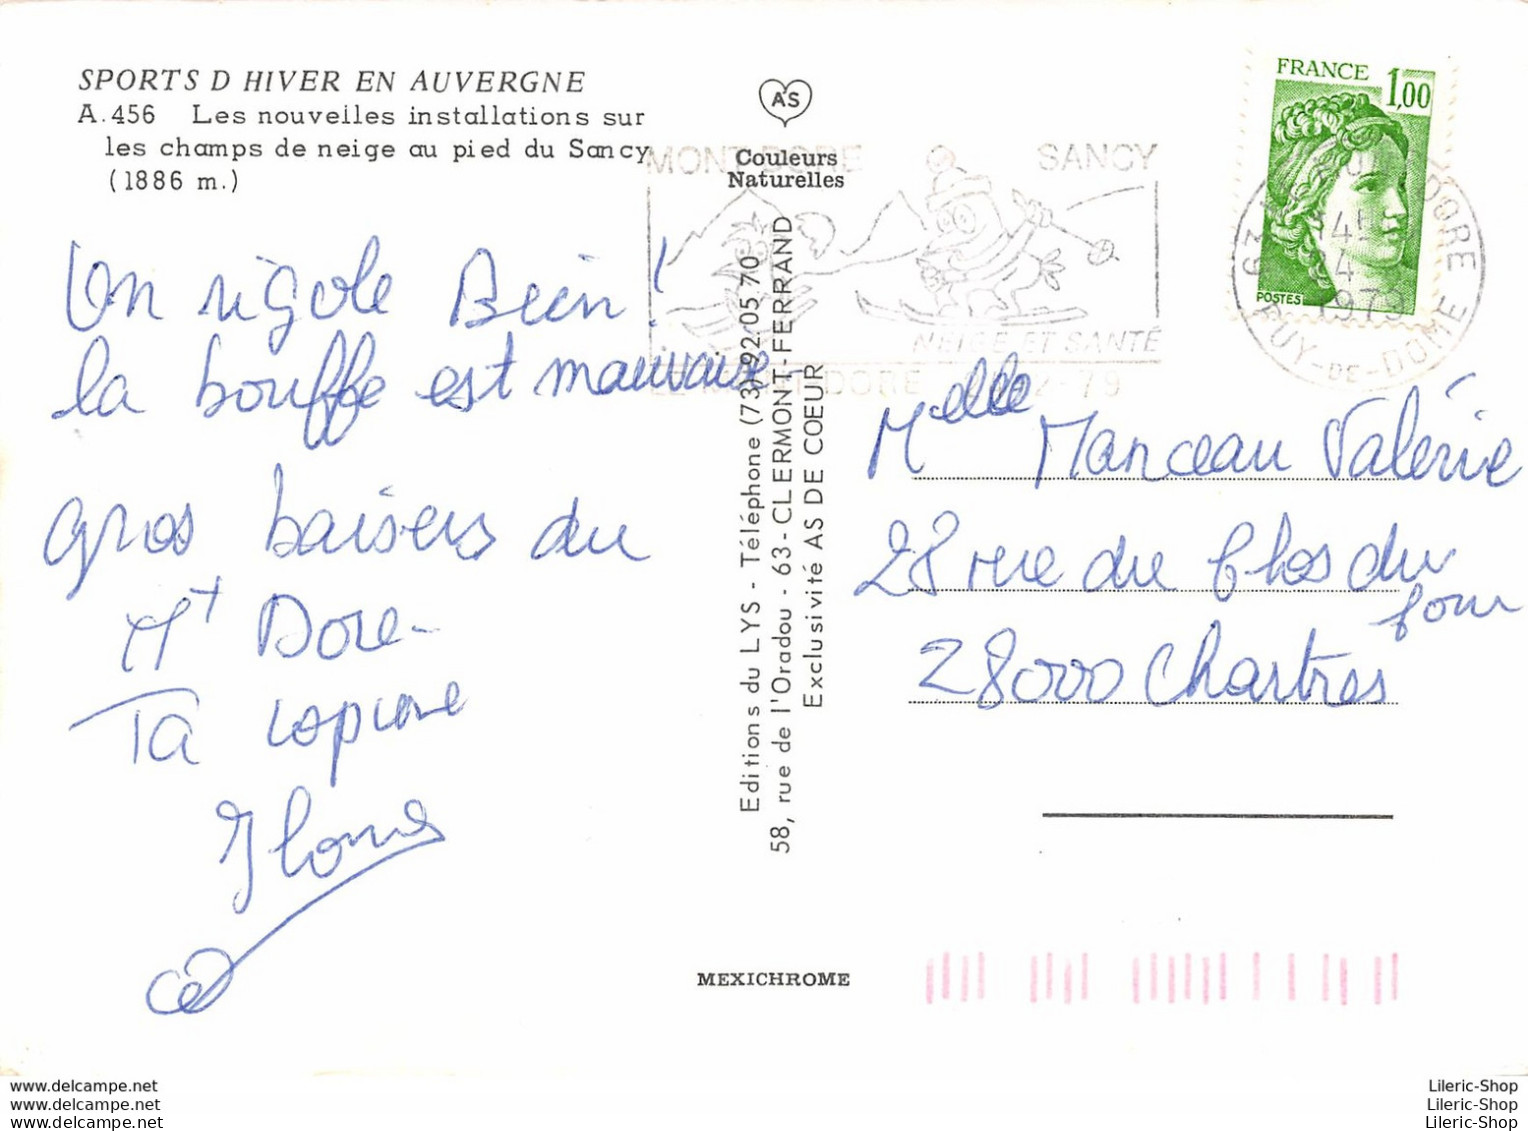 SPORTS D HIVER EN AUVERGNE
A.456 Les nouvelles installations sur
les champs de neige au pied du Sancy
(1886 m.)
On rigole Bien!
la bouffe est mauvaise-
Gros baisers du
Mt Dore-
Ta copine
AS
Couleurs
Naturelles
Editions du LYS - Téléphone (73) 92 05 70
58, rue de l'Oradou - 63-CLERMONT-FERRAND
Exclusivité AS DE COEUR
MEXICHROME
MONT-DORE SANCY
NEIGE ET SANTÉ
FRANCE 1,00
POSTES
1979
PUY-DE-DOME
Melle Manceau Valérie
28 rue du Clos du
four
28000 Chartres
www.delcampe.net
www.delcampe.net
www.delcampe.net
Lileric-Shop
Lileric-Shop
Lileric-Shop